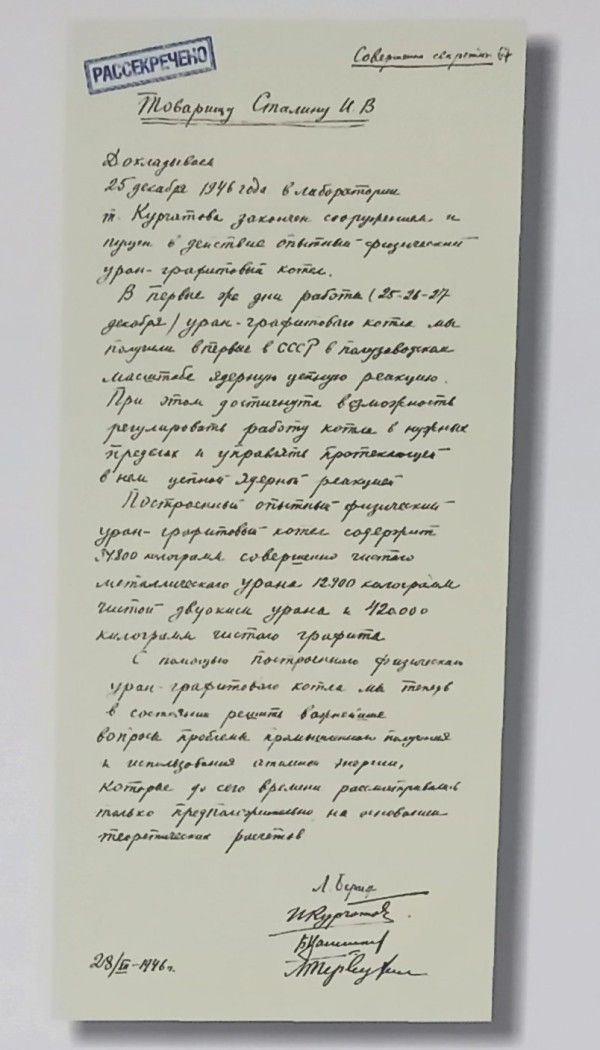 РАССЕКРЕЧЕНО
Совершенно секретно
Товарищу Сталину И В
Докладываем
25 декабря 1946 года в лаборатории
т. Курчатова закончен сооружением и
пущен в действие опытный физический
уран-графитовый котел.
В первые же дни работы (25-26-27
декабря) уран-графитового котла мы
получили впервые в СССР в полузаводском
масштабе ядерную цепную реакцию.
При этом достигнута возможность
регулировать работу котла в нужных
пределах и управлять протекающей
в нем цепной ядерной реакцией
Построенный опытный физический
уран-графитовый котел содержит
34800 килограмм совершенно чистого
металлического урана 12900 килограмм
чистой двуокиси урана и 420000
килограмм чистого графита
С помощью построенного физического
уран-графитового котла мы теперь
в состоянии решить важнейшие
вопросы проблемы промышленного получения
и использования атомной энергии,
которые до сего времени рассматривались
только предположительно на основании
теоретических расчетов
Л Берия
И Курчатов
Б Ванников
М Первухин
28/XII-1946 г.